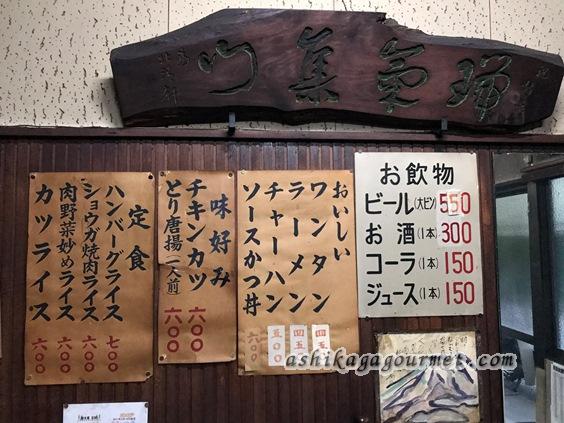 瑞氣集門
お飲物
ビール(大ビン)550
お酒(1本)300
コーラ(1本)150
ジュース(1本)150
おいしい
ワンタン 四五〇
ラーメン 四五〇
チャーハン 五〇〇
ソースかつ丼 六〇〇
味好み
チキンカツ 六〇〇
とり唐揚(一人前) 六〇〇
定食
ハンバーグライス 七〇〇
ショウガ焼肉ライス 六〇〇
肉野菜妙めライス 六〇〇
カツライス 六〇〇
ashikagagourmet.com